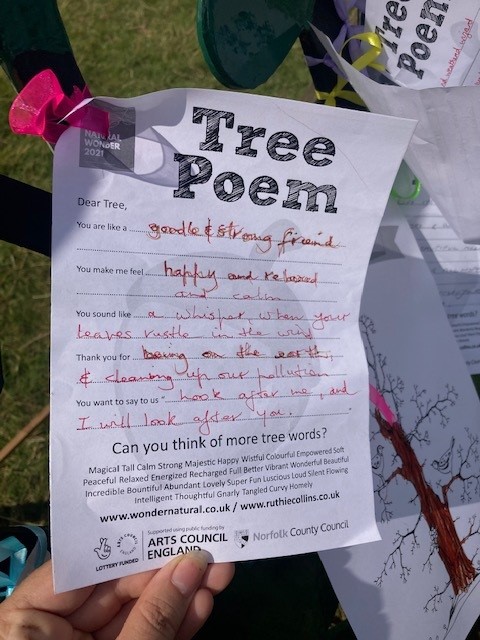 NATURAL
WONDER
2021
Tree
Poem
Dear Tree,
You are like a goodle & strong friend
You make me feel happy and relaxed
and calm
You sound like a whisper, when your
leaves rustle in the wind
Thank you for being on the earth,
& cleaning up our pollution
You want to say to us " Look after me, and
I will look after you.
Can you think of more tree words?
Magical Tall Calm Strong Majestic Happy Wistful Colourful Empowered Soft
Peaceful Relaxed Energized Recharged Full Better Vibrant Wonderful Beautiful
Incredible Bountiful Abundant Lovely Super Fun Luscious Loud Silent Flowing
Intelligent Thoughtful Gnarly Tangled Curvy Homely
www.wondernatural.co.uk / www.ruthiecollins.co.uk
LOTTERY FUNDED
Supported using public funding by
ARTS COUNCIL
ENGLAND
Norfolk County Council
Tree
Poem